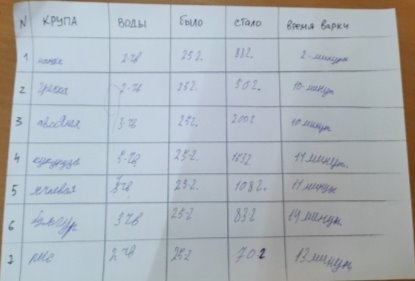 N КРУПА ВОДЫ БЫЛО СТАЛО ВРЕМЯ ВАРКИ
1 манная 2-ч 25г. 88г. 2-минуты
2 гречка 25г. 50г. 10-минут
3 овсяная 3-ч 25г. 200г 10 минут
4 кукуруза 25г. 11 минут.
5 ячневая 25г. 108г. 11 минут
6 булгур 25г 83г 14 минут
7 рис 25г 70г 13 минут